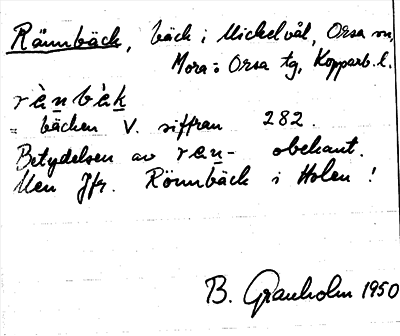 Rännbäck, bäck i Mickelvål, Orsa sn,
Mora o Orsa tg, Kopparb. l.
rȧ̀n bȧ̀k
= bäcken V. siffran 282.
Betydelsen av ran- obekant.
Men Jfr. Rönnbäck i Holen!
B. Granholm 1950